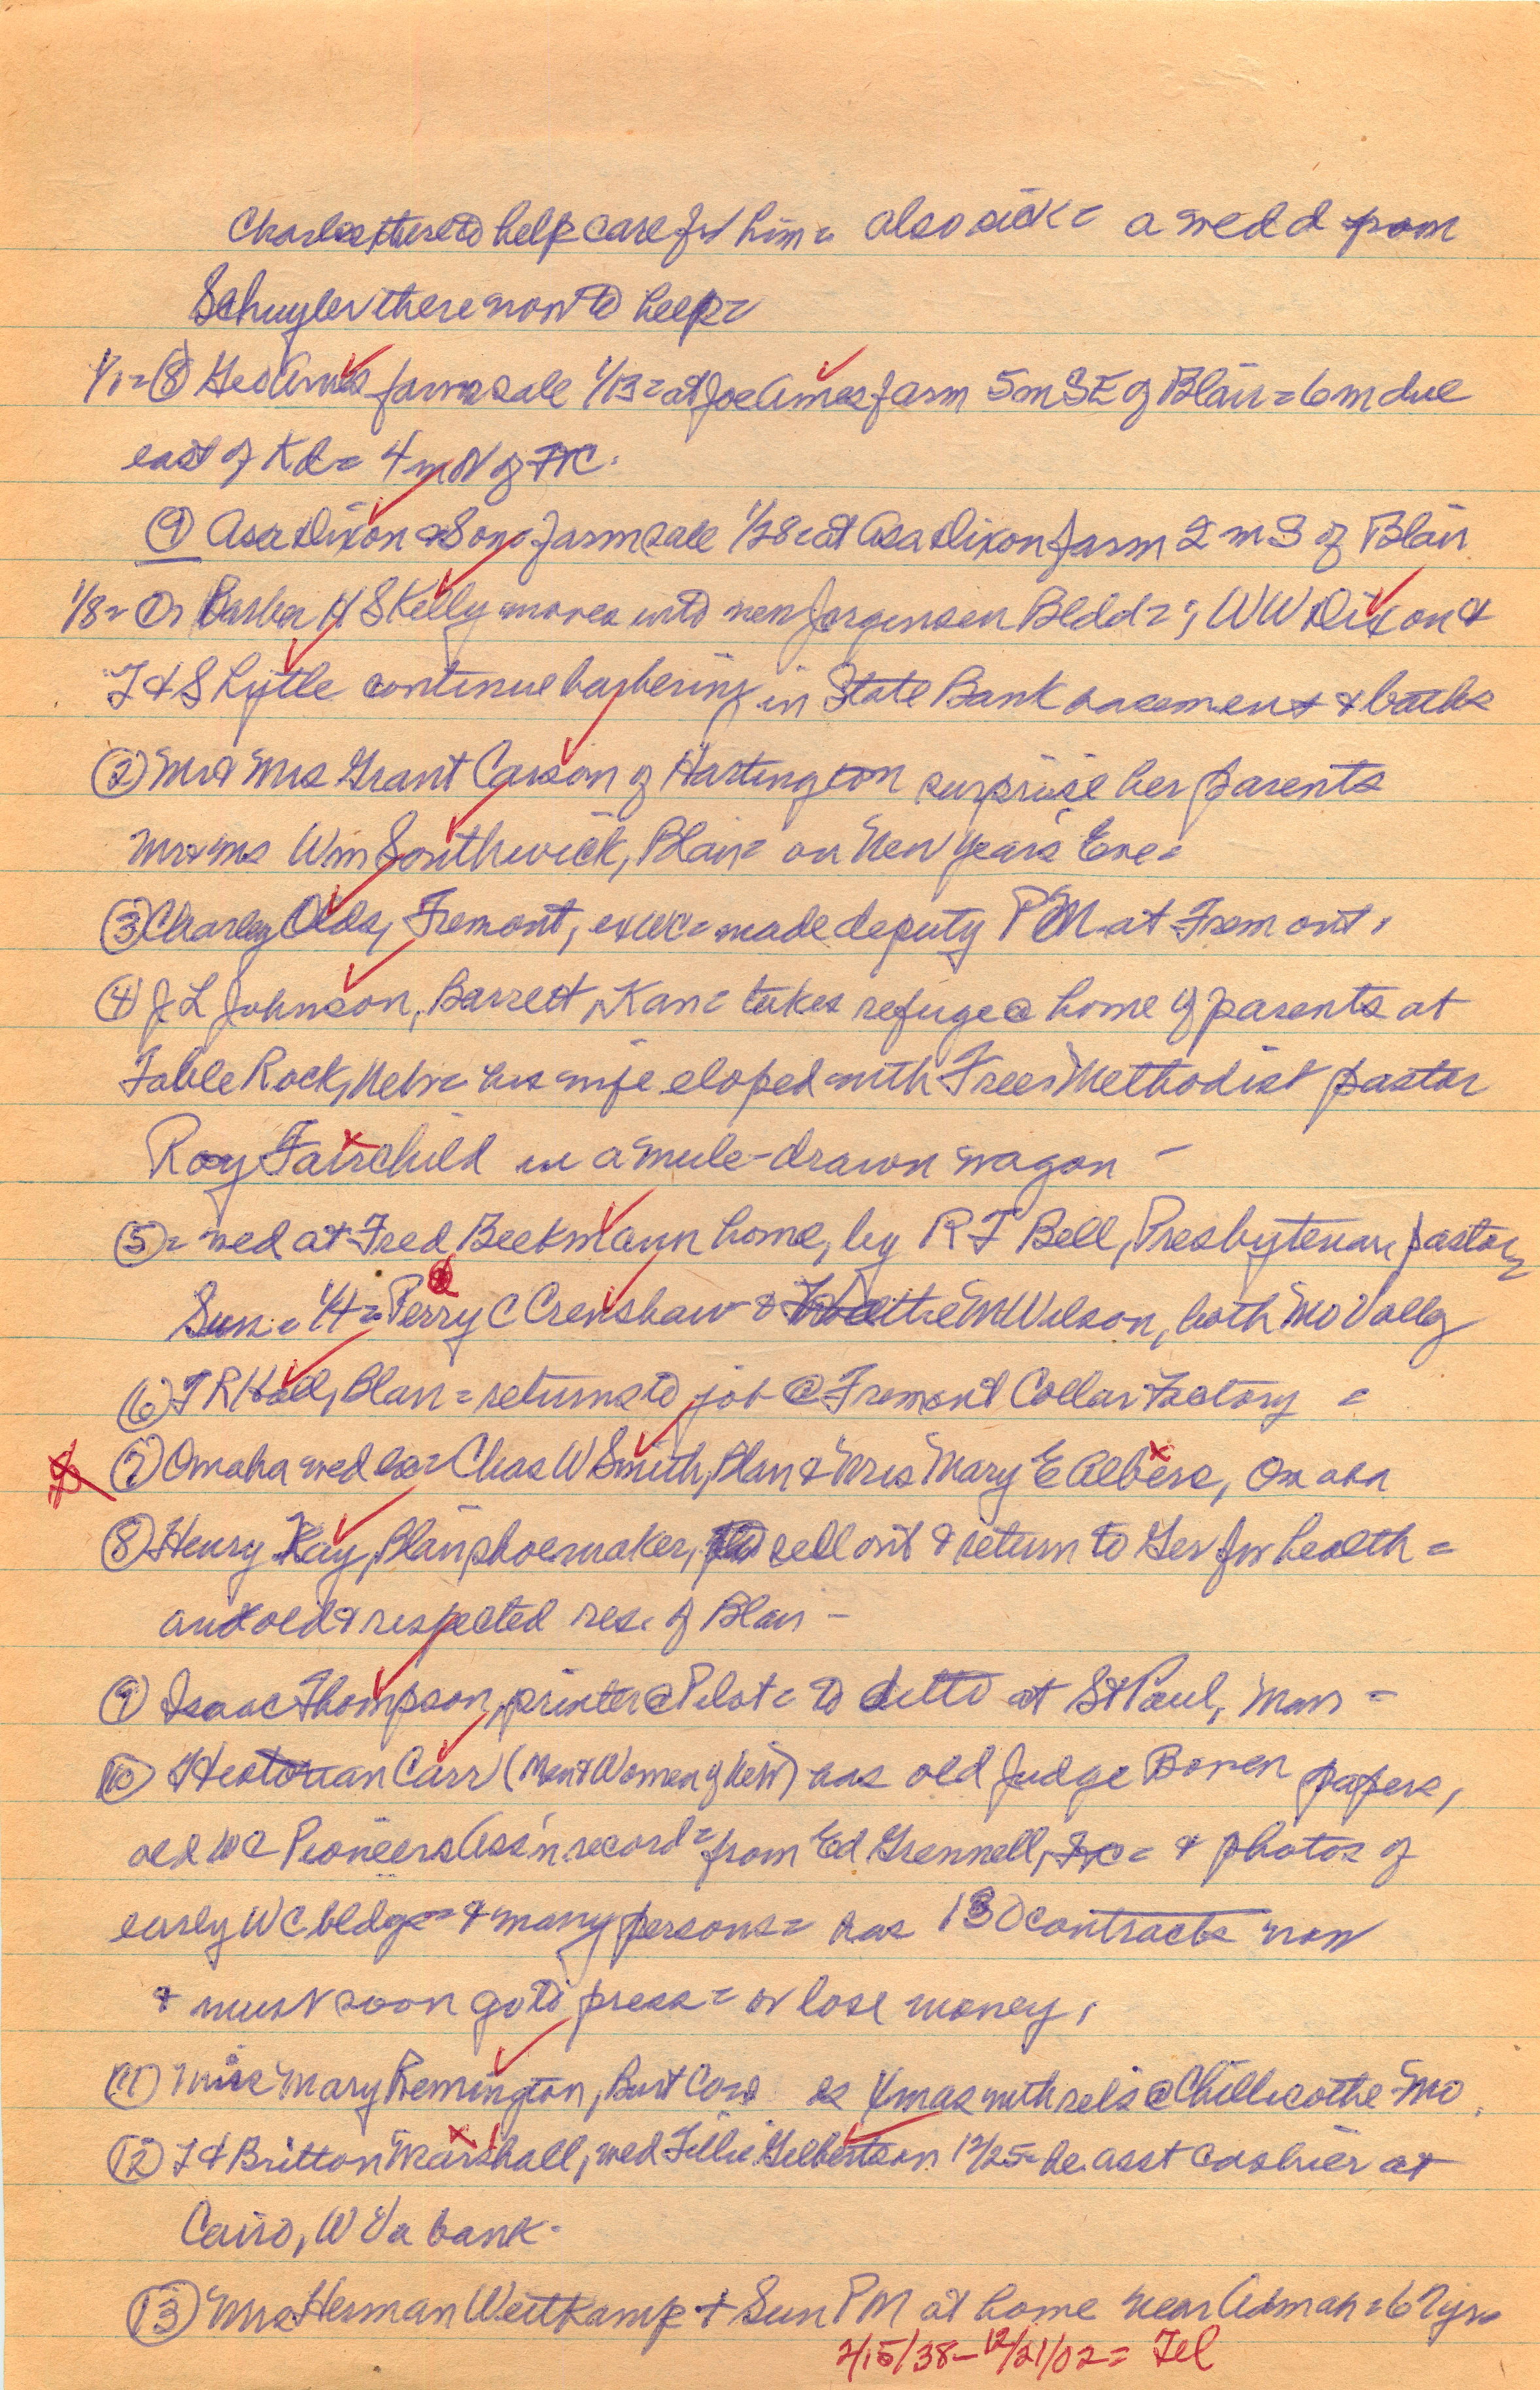 Charles there to help care for him = also sick = a wedd from
Schuyler there now to help =
1/1 = (8) Geo Ames farm sale 1/13 = at Joe Ames farm 5 m SE of Blair = 6 m due
east of Kd = 4 m N of FtC.
(9) Asa Dixon & Sons farm sale 1/28 = at Asa Dixon farm 2 m S of Blair
1/8 = (1) Barber H S Kelly moves into new Jorgensen Bldd = ; W W Dixon &
J & S Lytle continue barbering in State Bank basement & baths
(2) Mr & Mrs Grant Carson of Hartington surprise her parents
Mr & Mrs Wm Southwick, Blair = on New Years Eve =
(3) Charley Olds, Fremont, exWC = made deputy PM at Fremont.
(4) J L Johnson, Barrett, Kan = takes refuge @ home of parents at
Table Rock, Nebr = his wife eloped with Free Methodist pastor
Roy Fairchild in a mule-drawn wagon -
(5) = wed at Fred Beekmann home, by R F Bell, Presbyterian pastor
Sun = 1/4 = Perry C Crenshaw & M Wilson, both Mo Vally
(6) T R Hall, Blair = returns to job @ Fremont Collar Factory =
(7) Omaha wed lic = Chas W Smith, Blair & Mrs Mary E Albers, Omaha
(8) Henry Kay, Blair shoemaker, to sell out & return to Ger for health =
and old & respected res. of Blair -
(9) Isaac Thompson, printer @ Pilot = to ditto at St Paul, Minn =
(10) Historian Carr (Men & Women of Neb) has old Judge Bowen papers,
old WC Pioneers Ass'n record = from Ed Grennell, FtC = & photos of
early WC bldgs = & many persons = has 130 contracts now
& must soon go to press = or lose money.
(11) Miss Mary Remington, Burt Co = Xmas with rels @ Chillicothe Mo.
(12) J & Britton Marshall, wed Tillie Gilbertson 12/25 = he asst cashier at
Cairo, W Va bank -
(13) Mrs Herman Weitkamp + Sun PM at home near Admah = 67 yrs
2/15/38 - 12/21/02 = Tel